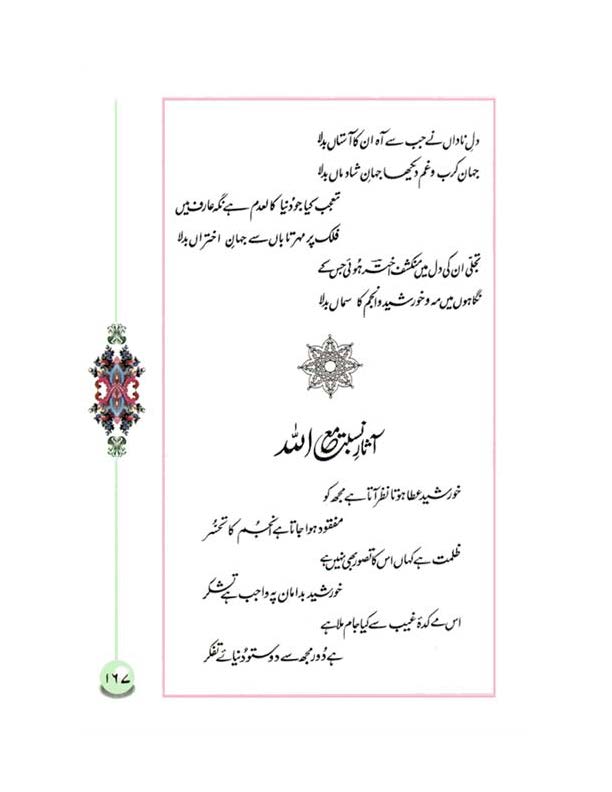 دلِ ناداں نے جب سے آہ ان کا آستاں بدلا
جہانِ کرب و غم دیکھا جہانِ شادماں بدلا
تعجب کیا جو دُنیا کالعدم ہے نگہِ عارف میں
فلک پر مہرِ تاباں سے جہانِ اختراں بدلا
تجلّی ان کی دل میں منکشف اختر ہُوئی جس کے
نگاہوں میں مہ و خورشید و انجم کا سماں بدلا
آثارِ نسبت مع اللہ
خورشید عطا ہوتا نظر آتا ہے مجھ کو
مفقود ہوا جاتا ہے انجُم کا تحسُّر
ظلمت ہے کہاں اس کا تصور بھی نہیں ہے
خورشید بداماں پہ واجب ہے تشکر
اس مے کدۂ غیب سے کیا جام ملا ہے
ہے دُور مجھ سے دوستو دُنیائے تفکر
۱۶۷